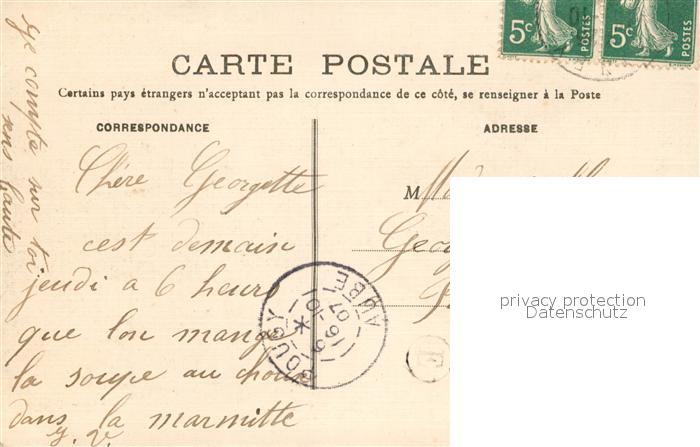 5c POSTES 5c POSTES
CARTE POSTALE
Certains pays étrangers n'acceptant pas la correspondance de ce côté, se renseigner à la Poste
CORRESPONDANCE
ADRESSE
Chère Georgette
cest demain
jeudi a 6 heure
que lon mange
la soupe au choux
dans la marmitte
J. V.
Je compte sur toi
sens faute
M
Geor
AUBE
privacy protection
Datenschutz
E